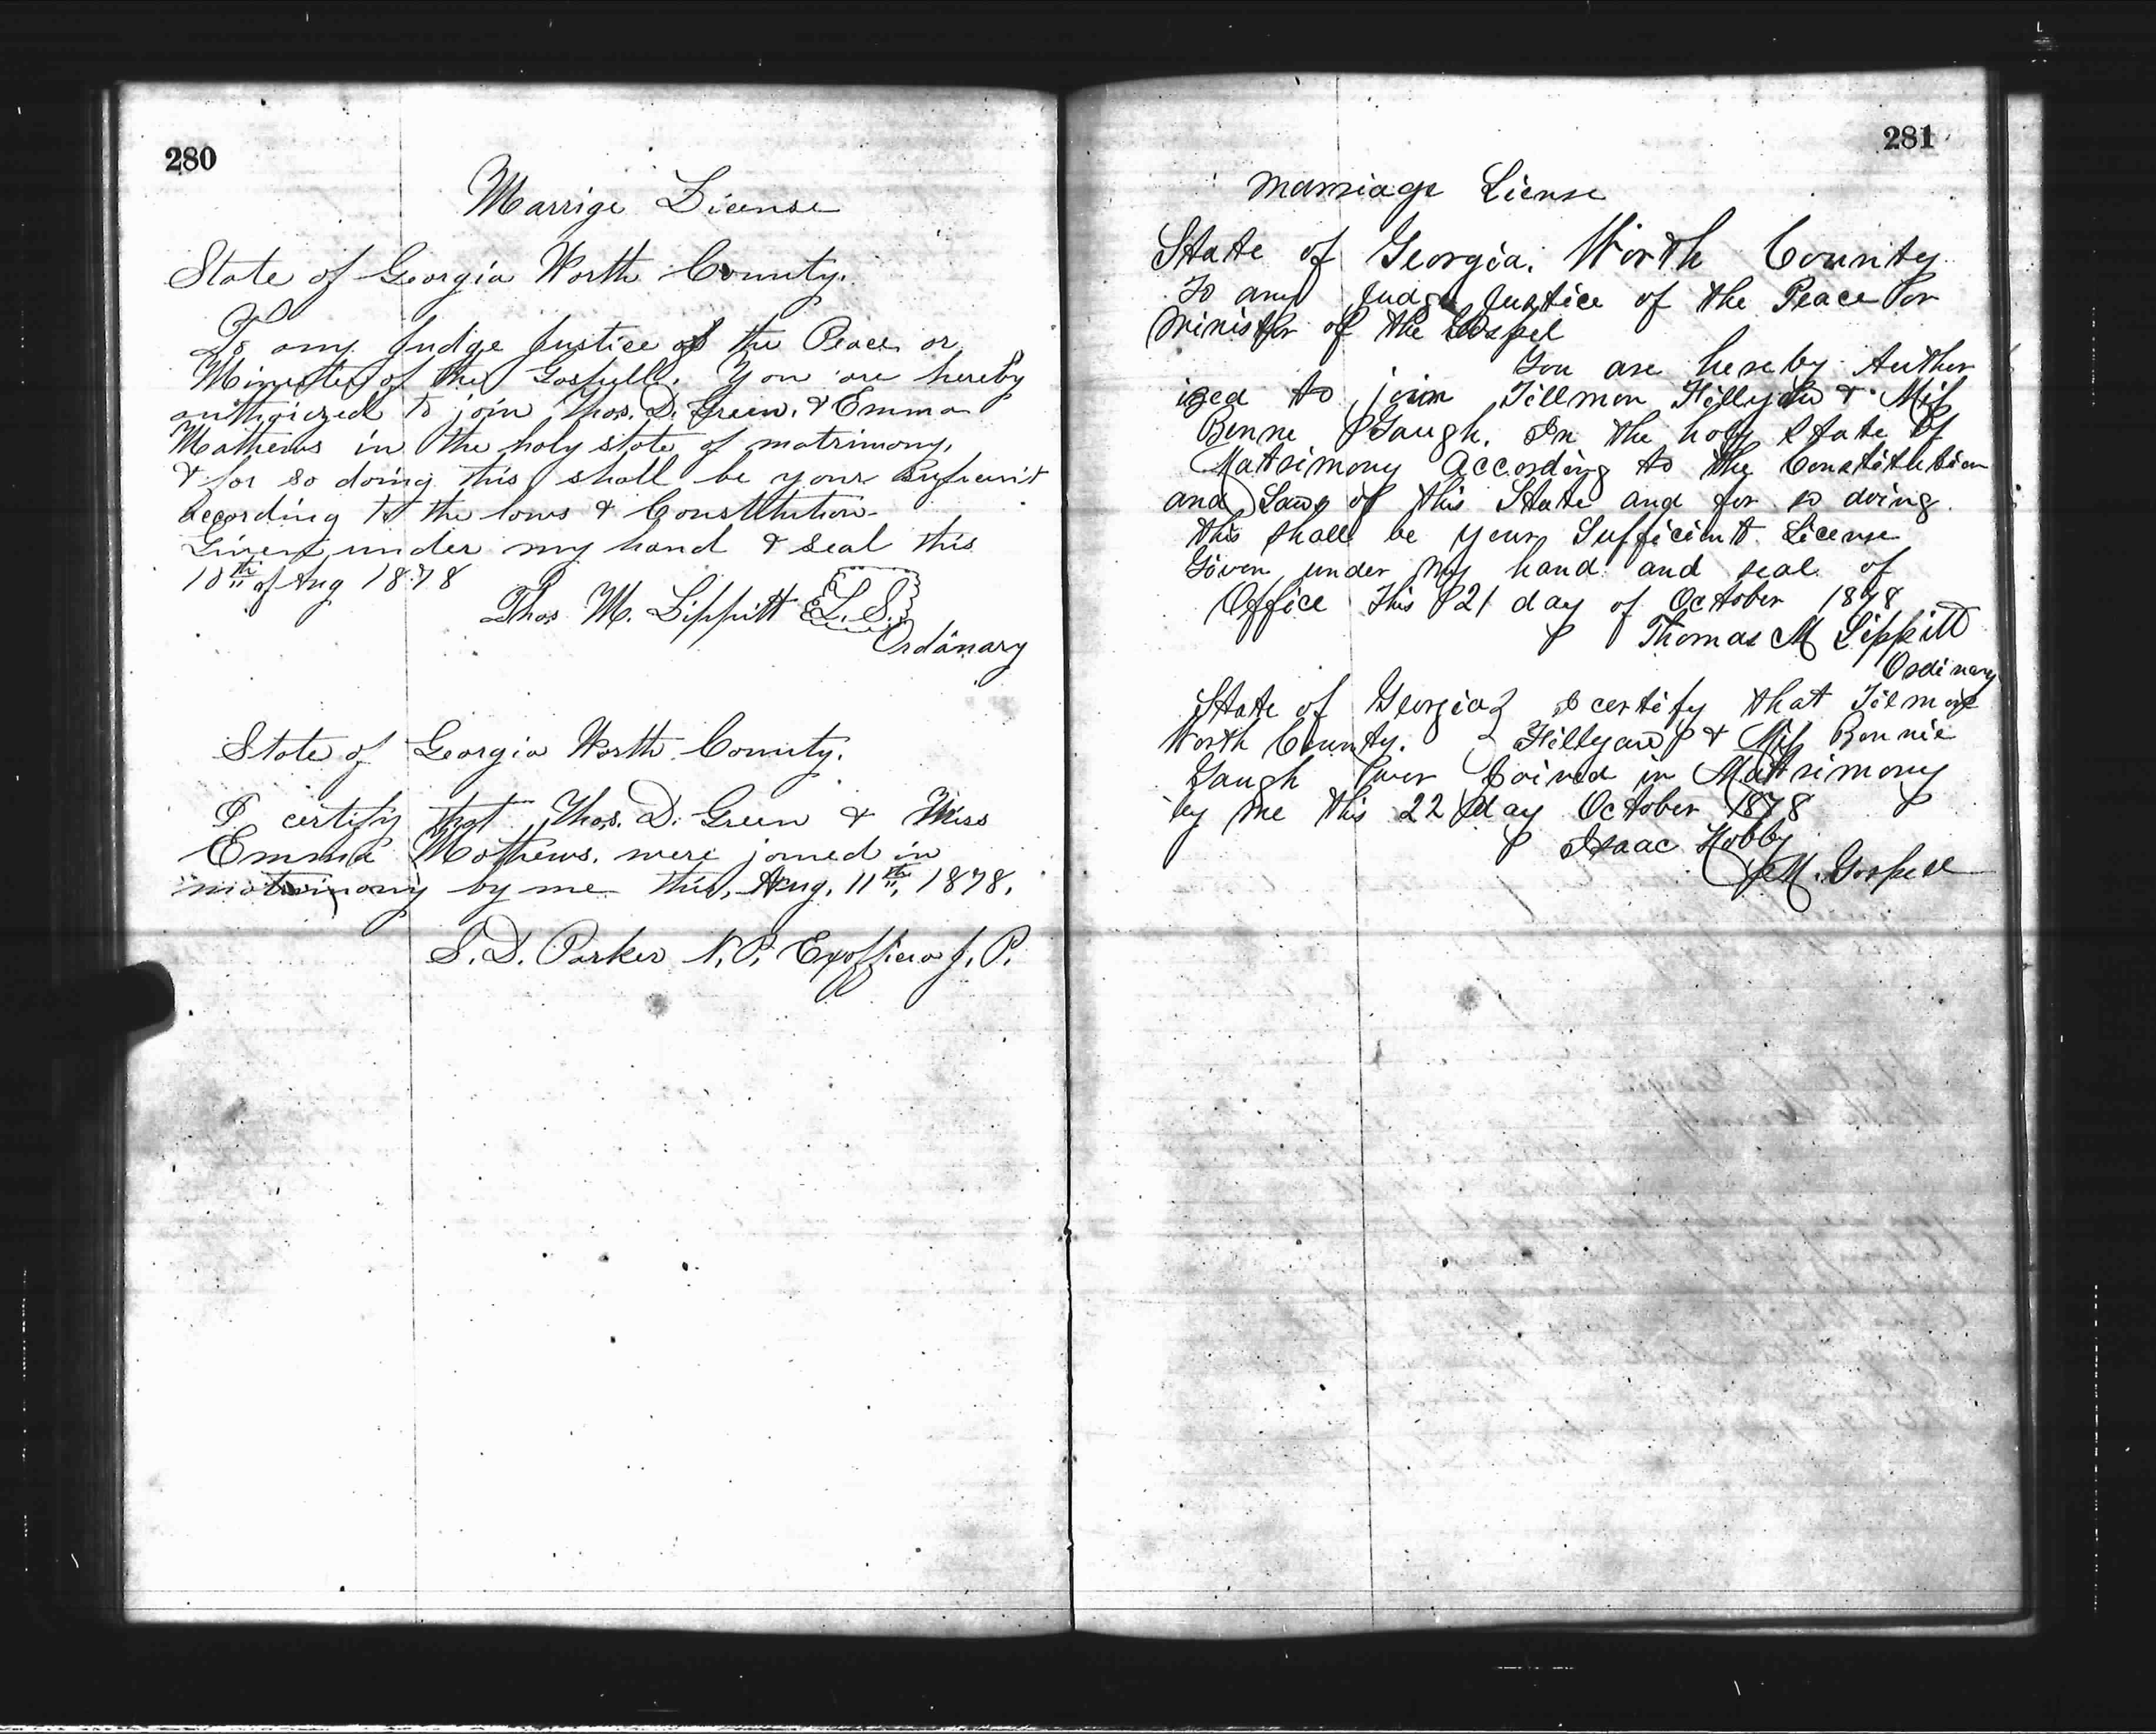 280
Marrige License
State of Georgia Worth County.
To any Judge Justice of the Peace or
Minister of the Gospell. You are hereby
authoriczed to join Thos. D. Green, & Emma
Mathews in the holy state of matrimony,
& for so doing this shall be your
according to the laws & Constitution
Given under my hand & seal this
10th of Aug 1878
Thos M. Lippitt L.S.
Ordinary
State of Georgia Worth County.
I certify that Thos. D. Green & Miss
Emma Mathews. were joined in
matrimony by me this, Aug. 11th, 1878.
S. D. Parker N.P. Exofficio J.P.
281
Marriage Liense
State of Georgia. Worth County
To any Judge Justice of the Peace or
Minister of the Gospel
You are hereby Author
ized to join Tillmon & Miss
Benne Gaugh. In the holy State of
Matrimony According to the Constitution
and Laws of this State and for so doing.
this shall be your Sufficient License
Given under my hand and seal of
Office This 21 day of October 1878
Thomas M Lippitt
Ordinary
State of Georgia } I certify that Tilmon
Worth County. } Hillyard & Miss Bennie
Gaugh wer Joined in Matrimony
by me this 22 day October 1878
Isaac Hobby
M. Gospell